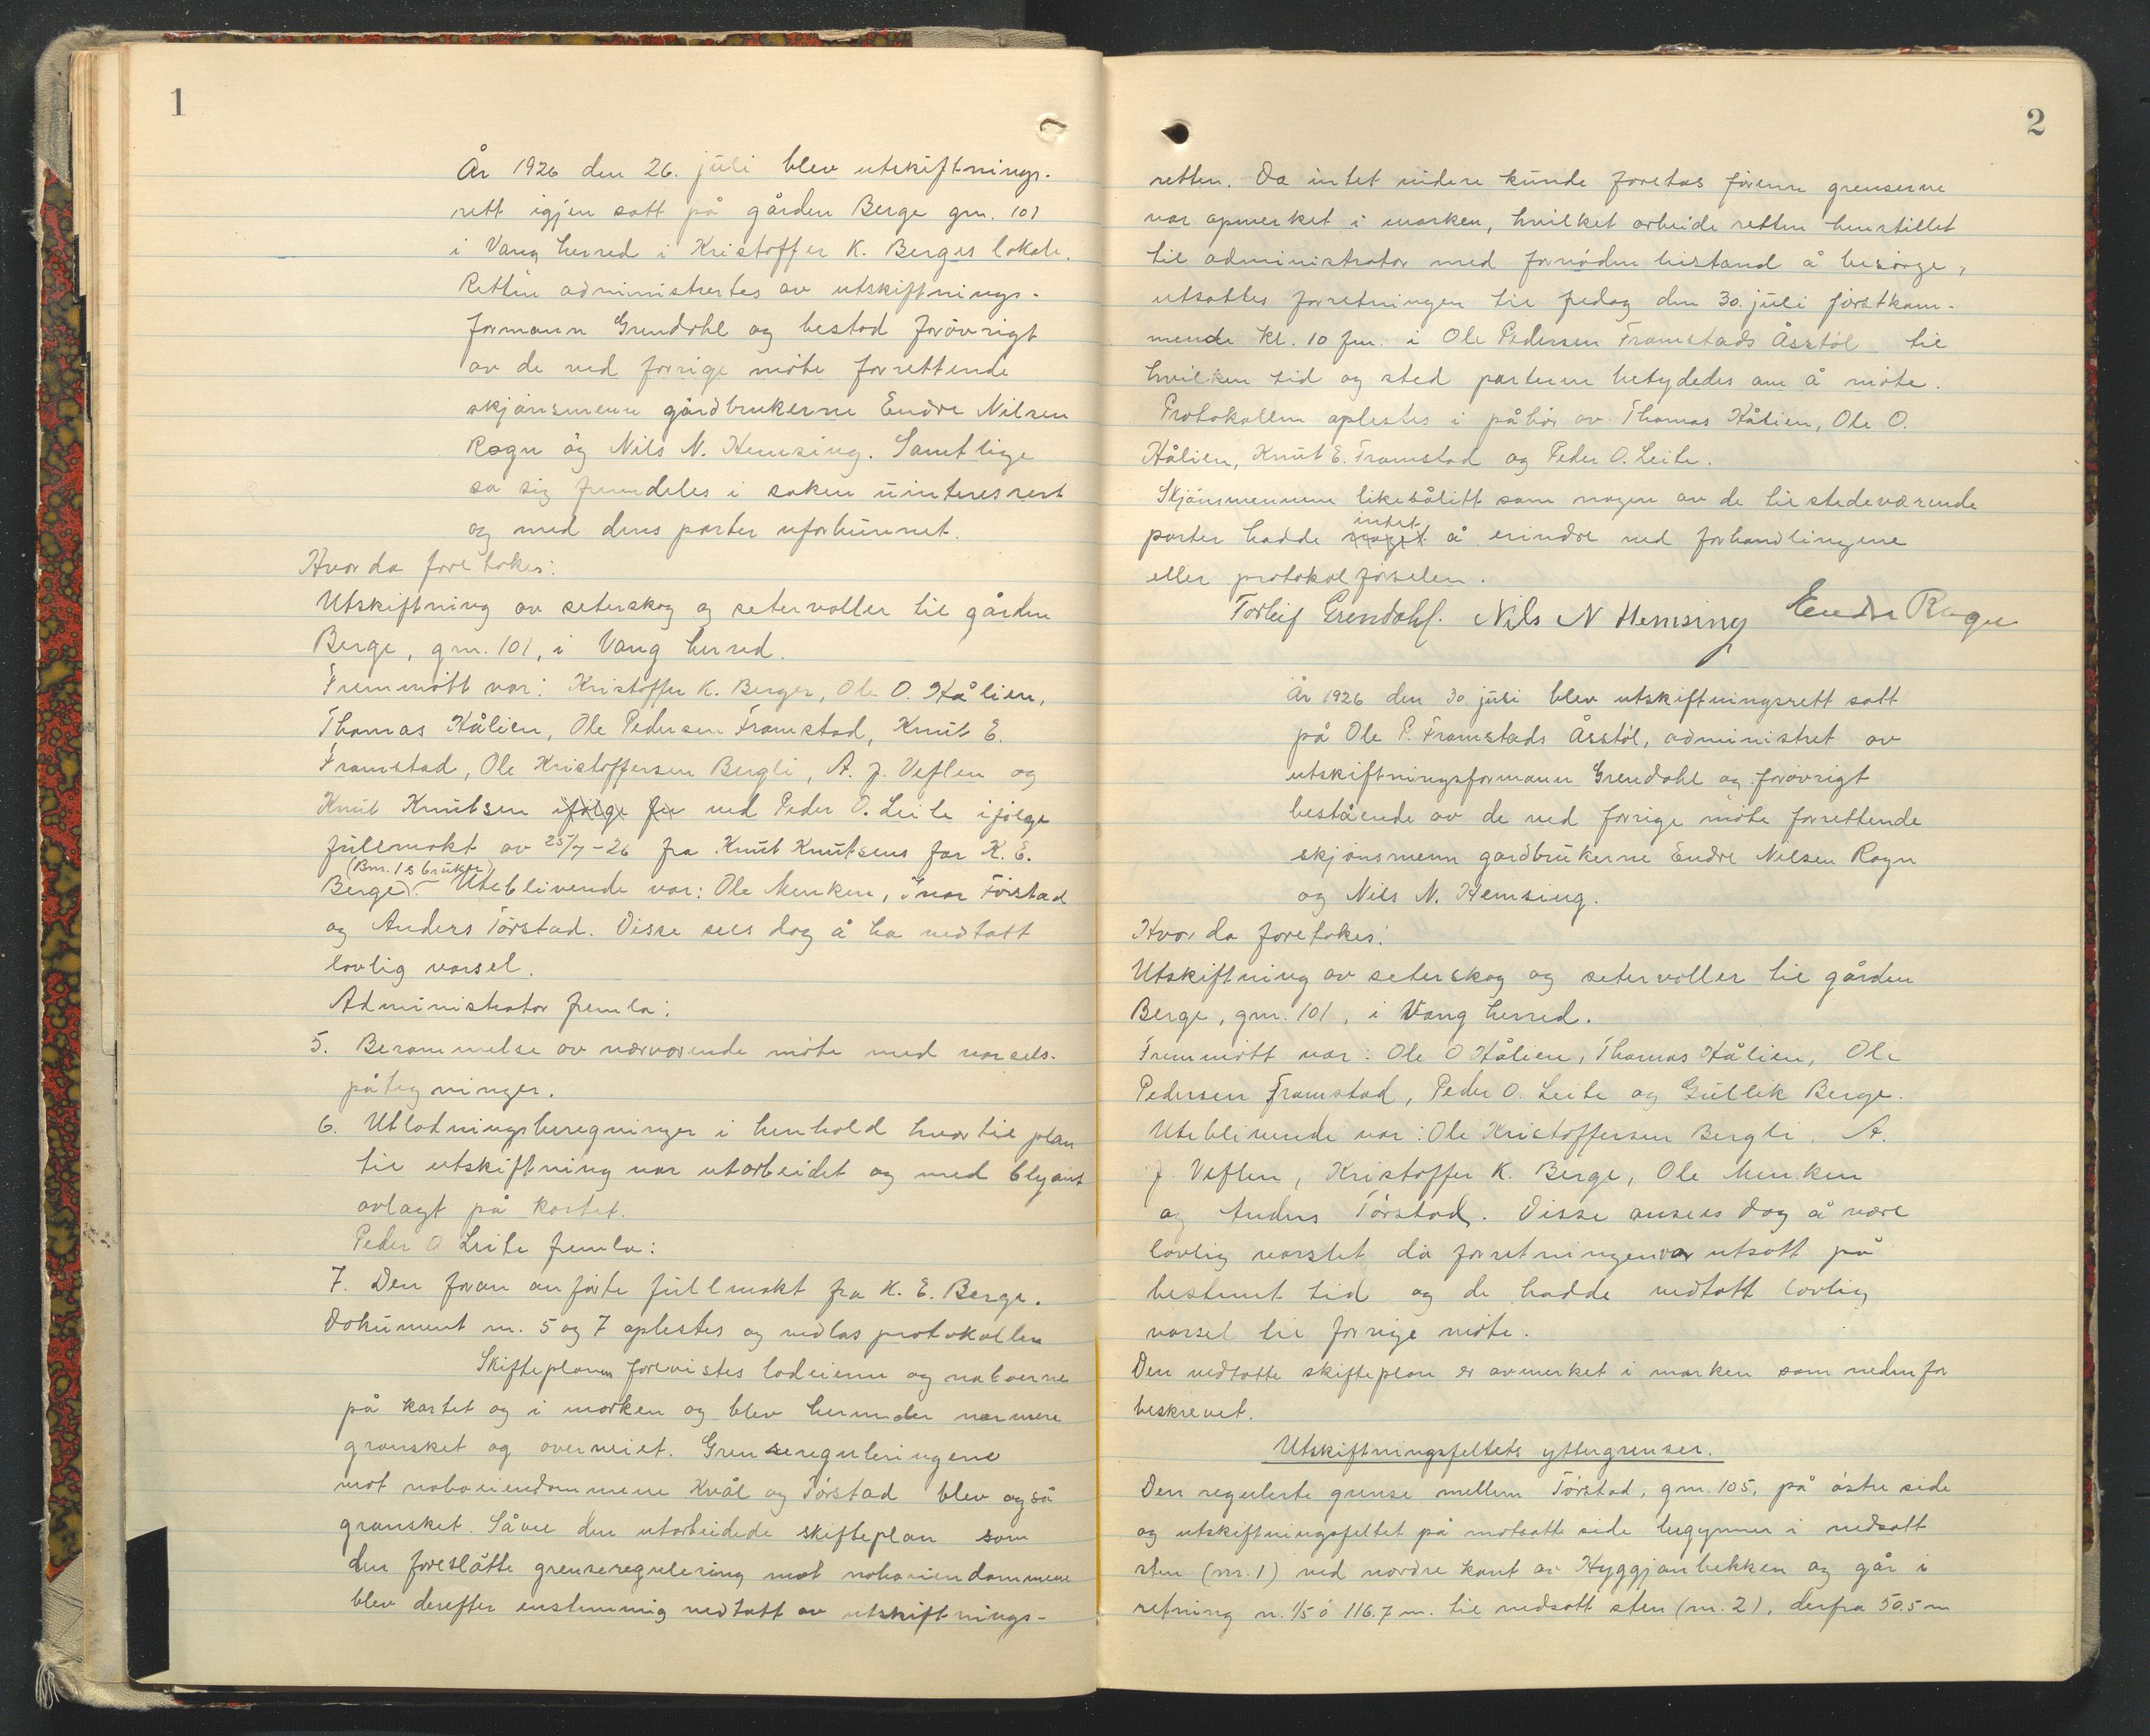 1
År 1926 den 26. juli blev utskiftnings-
rett igjen satt på gården Berge gnr. 101
i Vang herred i Kristoffer K. Berges lokale.
Retten administrertes av utskiftnings-
formann Grendahl og bestod forøvrigt
av de ved forrige møte forrettende
skjønsmenn gårdbrukerne Endre Nilsen
Rogn og Nils N. Hemsing. Samtlige
sa sig fremdeles i saken uinteressert
og med dens parter uforbunnet.
Hvor da foretokes:
Utskiftning av seterskog og setervoller til gården
Berge, gnr. 101, i Vang herred.
Fremmøtt var: Kristoffer K. Berge, Ole O. Kålien,
Thomas Kålien, Ole Pedersen Framstad, Knut E.
Framstad, Ole Kristoffersen Bergli, A. J. Veflen og
Knut Knutsen ifølge fu ved Peder O. Leite ifølge
fullmakt av 25/7-26 fra Knut Knutsens far K. E.
(Bnr. 1s bruker)
Berge). - Uteblivende var: Ole Menken, Ivar Tørstad
og Anders Tørstad. Disse sees dog å ha vedtatt
lovlig varsel.
Administrator fremla:
5. Berammelse av nærværende møte med varsels-
påtegninger.
6. Utlodningsberegninger i henhold hvortil plan
til utskiftning var utarbeidet og med blyant
avlagt på kartet.
Peder O Leite fremla:
7. Den foran anførte fullmakt fra K. E. Berge.
Dokument nr. 5 og 7 oplestes og vedlas protokollen
Skifteplanen forevistes lodeierne og naboerne
på kartet og i marken og blev herunder nærmere
gransket og overveiet. Grensereguleringene
mot naboeiendommene Kvåle og Tørstad blev også
gransket. Såvel den utarbeidede skifteplan som
den foreslåtte grenseregulering mot naboeiendommene
blev derefter enstemmig vedtatt av utskiftnings-
2
retten. Da intet videre kunde foretas førenn grenserne
var opmerket i marken, hvilket arbeide retten henstillet
til administrator med fornøden bistand å besørge,
utsattes forretningen til fredag den 30. juli førstkom-
mende kl. 10 fm. i Ole Pedersen Framstads Åsstøl til
hvilken tid og sted parterne betydedes om å møte.
Protokollen oplestes i påhør av Thomas Kålien, Ole O.
Kålien, Knut E. Framstad og Peder O. Leite.
Skjønsmennene likesålitt som nogen av de tilstedeværende
intet
parter hadde noget å erindre ved forhandlingene
eller protokolførselen.
Torleif Grendahl. Nils N Hemsing Endre Rogn
År 1926 den 30. juli blev utskiftningsrett satt
på Ole P. Framstads Åsstøl, administret av
utskiftningsformann Grendahl og forøvrigt
bestående av de ved forrige møte forrettende
skjønsmenn gardbrukerne Endre Nilsen Rogn
og Nils N. Hemsing.
Hvor da foretokes:
Utskiftning av seterskog og setervoller til gården
Berge, gnr. 101, i Vang herred.
Fremmøtt var: Ole O Kålien, Thomas Kålien, Ole
Pedersen Framstad, Peder O. Leite og Gullik Berge.
Uteblivende var: Ole Kristoffersen Bergli, A.
J. Veflen, Kristoffer K. Berge, Ole Menken
og Anders Tørstad. Disse ansees dog å være
lovlig varslet da forretningen var utsatt på
bestemt tid og de hadde vedtatt lovlig
varsel til forrige møte.
Den vedtatte skifteplan er avmerket i marken som nedenfor
beskrevet.
Utskiftningsfeltets yttergrenser.
Den regulerte grense mellem Tørstad, gnr. 105, på østre side
og utskiftningsfeltet på motsatte side begynner i nedsatt
sten (nr. 1) ved nordre kant av Hyggjanbekken og går i
retning n. 1/5 ø 116.7 m. til nedsatt sten (nr. 2), derfra 50.5 m